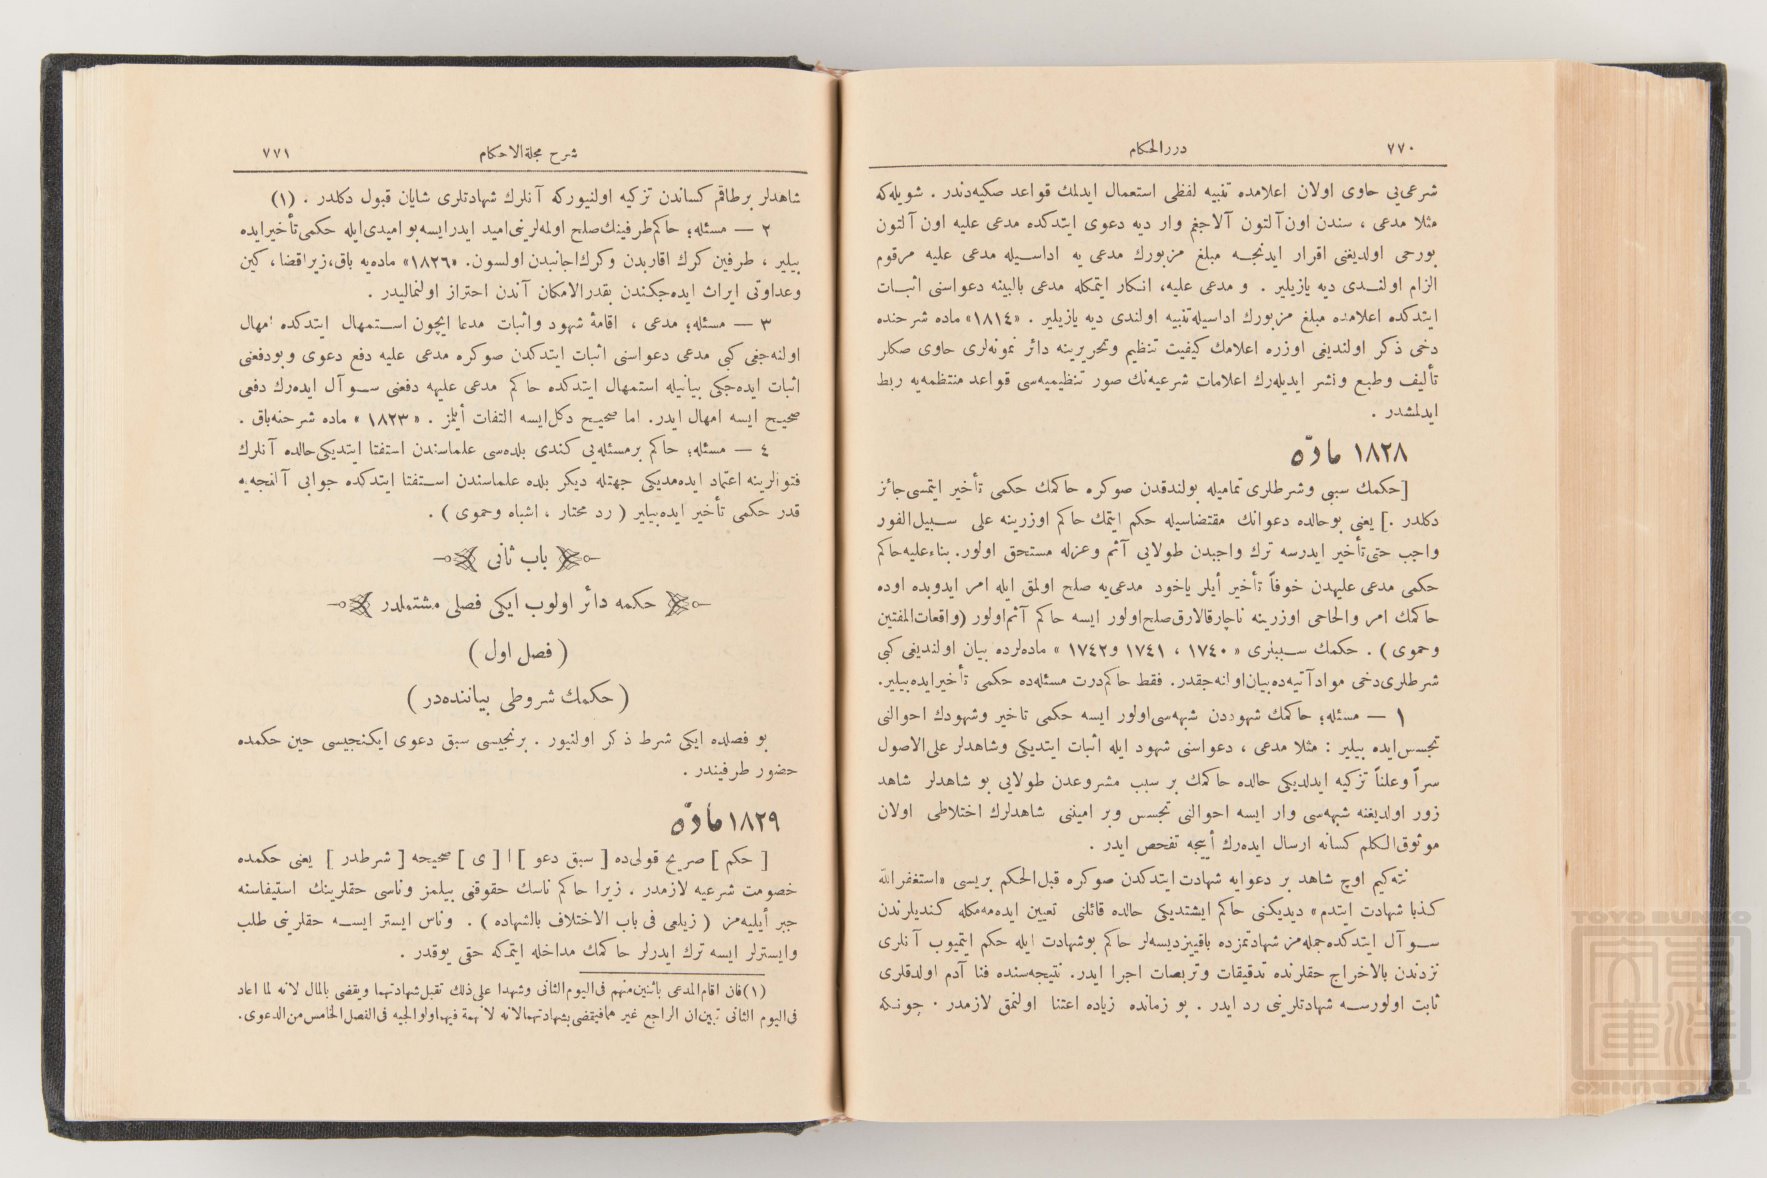 ٧٧٠
دررالحكام
شرعیی حاوی اولان اعلامده تنبیه لفظی استعمال ایدلمك قواعد صكیه‌دندر . شویله‌كه
مثلا مدعی ، سندن اون آلتون آلاجغم وار دیه دعوی ایتدكده مدعی علیه اون آلتون
بورجی اولدیغنی اقرار ایدنجه مبلغ مزبورك مدعی یه اداسیله مدعی علیه مرقوم
الزام اولندی دیه یازیلیر . و مدعی علیه، انكار ایتمكله مدعی بالبینه دعواسنی اثبات
ایتدكده اعلامده مبلغ مزبورك اداسیله تنبیه اولندی دیه یازیلیر . «١٨١٤» ماده شرحنده
دخی ذكر اولندیغی اوزره اعلامك كیفیت تنظیم وتحریرینه دائر نمونه‌لری حاوی صكلر
تألیف وطبع ونشر ایدیله‌رك اعلامات شرعیه‌نك صور تنظیمیه‌سی قواعد منتظمه‌یه ربط
ایدلمشدر .
١٨٢٨ مادّه
[حكمك سببی وشرطلری تمامیله بولندقدن صوكره حاكمك حكمی تأخیر ایتمسی جائز
دكلدر .] یعنی بوحالده دعوانك مقتضاسیله حكم ایتمك حاكم اوزرینه علی سبیل الفور
واجب حتی تأخیر ایدرسه ترك واجبدن طولایی آثم وعزله مستحق اولور. بناءعلیه حاكم
حكمی مدعی علیهدن خوفاً تأخیر أیلر یاخود مدعی‌یه صلح اولمق ایله امر ایدوبده اوده
حاكمك امر والحاحی اوزرینه ناچارقالارق صلح اولور ایسه حاكم آثم اولور (واقعات المفتین
وحموی) . حكمك سببلری « ١٧٤٠ ، ١٧٤١ و١٧٤٢ » ماده‌لرده بیان اولندیغی كبی
شرطلری دخی مواد آتیه‌ده بیان اولنه‌جقدر. فقط حاكم درت مسئله‌ده حكمی تأخیر ایده‌بیلیر.
١ — مسئله؛ حاكمك شهوددن شبهه‌سی اولور ایسه حكمی تاخیر وشهودك احوالنی
تجسس ایده بیلیر : مثلا مدعی ، دعواسنی شهود ایله اثبات ایتدیكی وشاهدلر علی الاصول
سراً وعلناً تزكیه ایدلدیكی حالده حاكمك بر سبب مشروعدن طولایی بو شاهدلر شاهد
زور اولدیغنه شبهه‌سی وار ایسه احوالنی تجسس وبر امیننی شاهدلرك اختلاطی اولان
موثوق الكلم كسانه ارسال ایده‌رك أییجه تفحص ایدر .
نته‌كیم اوچ شاهد بر دعوایه شهادت ایتدكدن صوكره قبل الحكم بریسی «استغفرالله
كذبا شهادت ایتدم» دیدیكنی حاكم ایشتدیكی حالده قائلنی تعیین ایده‌مه‌مكله كندیلرندن
سوآل ایتدكده جمله‌مز شهادتمزده باقییز دیسه‌لر حاكم بوشهادت ایله حكم ایتمیوب آنلری
نزدندن بالاخراج حقلرنده تدقیقات وتربصات اجرا ایدر. نتیجه‌سنده فنا آدم اولدقلری
ثابت اولورسه شهادتلرینی رد ایدر . بو زمانده زیاده اعتنا اولنمق لازمدر . چونكه
شرح مجلةالاحكام
٧٧١
شاهدلر برطاقم كساندن تزكیه اولنیوركه آنلرك شهادتلری شایان قبول دكلدر . (١)
٢ — مسئله؛ حاكم طرفینك صلح اولمه‌لرینی امید ایدر ایسه بو امیدی ایله حكمی تأخیر ایده
بیلیر ، طرفین كرك اقاربدن وكرك اجانبدن اولسون. «١٨٢٦» ماده‌یه باق، زیرا قضا ، كین
وعداوتی ایراث ایده‌جكندن بقدرالامكان آندن احتراز اولنمالیدر .
٣ — مسئله؛ مدعی ، اقامۀ شهود واثبات مدعا ایچون استمهال ایتدكده امهال
اولنه‌جغی كبی مدعی دعواسنی اثبات ایتدكدن صوكره مدعی علیه دفع دعوی وبودفعنی
اثبات ایده‌جكی بیانیله استمهال ایتدكده حاكم مدعی علیهه دفعنی سوآل ایده‌رك دفعی
صحیح ایسه امهال ایدر. اما صحیح دكل ایسه التفات أیلمز . « ١٨٢٣ » ماده شرحنه باق .
٤ — مسئله؛ حاكم برمسئله‌یی كندی بلده‌سی علماسندن استفتا ایتدیكی حالده آنلرك
فتوالرینه اعتماد ایده‌مدیكی جهتله دیكر بلده علماسندن استفتا ایتدكده جوابی آلنجه‌یه
قدر حكمی تأخیر ایده‌بیلیر ( رد محتار ، اشباه وحموی ) .
باب ثانی
حكمه دائر اولوب ایكی فصلی مشتملدر
( فصل اول )
( حكمك شروطی بیاننده‌در )
بو فصلده ایكی شرط ذكر اولنیور . برنجیسی سبق دعوی ایكنجیسی حین حكمده
حضور طرفیندر .
١٨٢٩ مادّه
[ حكم ] صریح قولی‌ده [ سبق دعو ] ا [ ی ] صحیحه [ شرطدر ] یعنی حكمده
خصومت شرعیه لازمدر . زیرا حاكم ناسك حقوقنی بیلمز وناسی حقلرینك استیفاسنه
جبر أیلیه‌مز ( زیلعی فی باب الاختلاف بالشهاده ) . وناس ایستر ایسه حقلرینی طلب
وایسترلر ایسه ترك ایدرلر حاكمك مداخله ایتمكه حقی یوقدر .
(١) فان اقام المدعی باثنین منهم فی الیوم الثانی وشهدا علی ذلك تقبل شهادتهما ویقضی بالمال لانه لما اعاد
فی الیوم الثانی تبین ان الراجع غیر هما فیقضی بشهادتهما لانه لاتهمة فیهما ولوالجیه فی الفصل الخامس من الدعوی.
TOYO BUNKO
東洋文庫
TOYO BUNKO